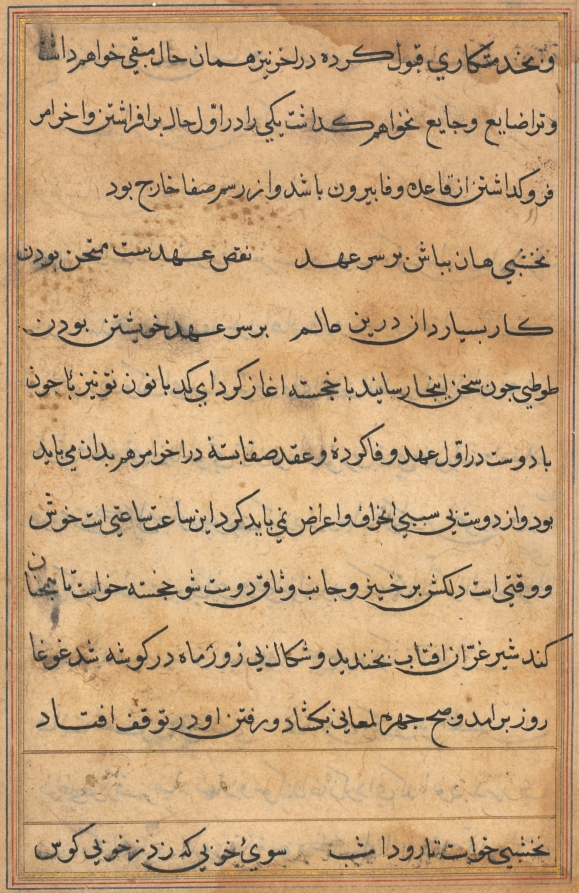 و بخدمتکاري قبول کرده در اخر نیز همان حال مبقي خواهم داشت
و ترا ضایع و جایع نخواهم کداشت یکي را در اوّل حال برافراشتن و اخر امر
فرو کداشتن از قاعده وفا بیرون باشد و از رسم صفا خارج بود
نخشبي هان بباش بر سر عهد نقض عهدست ممتحن بودن
کار بسیار دان درین عالم بر سر عهد خویشتن بودن
طوطي جون سخن اینجا رسانید با خجسته اغاز کرد اي کدبانو نون تو نیز تا جون
با دوست در اوّل عهد وفا کردهٔ و عقد صفا بستهٔ در اخر امر هم بدان مي باید
بود و از دوست بي سببي انحراف و اعراض نمي باید کرد این ساعت ساعتي است خوش
و وقتي است دلکش برخیز و جانب وثاق دوست شو خجسته خواست تا همجنان
کند شیر غرّان افتاب بخندید و شکال بي زور ماه در کوشه شد غوغا
روز برامد و صبح جهره لمعاني بکشاد و رفتن او در توقف افتاد
نخشبي خواست تا رود امشب سوئ خوبي که زد ز خوبي کوس